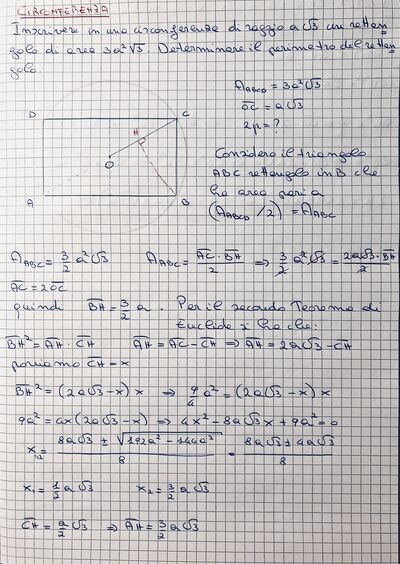 CIRCONFERENZA
Inscrivere in una circonferenza di raggio a√3 un rettan
golo di area 3a²√3. Determinare il perimetro del rettan
golo.
A_ABCD = 3a²√3
OC = a√3
2p = ?
D
C
H
O
A
B
Considero il triangolo
ABC rettangolo in B che
ha area pari a
(A_ABCD /2) = A_ABC
A_ABC = 3/2 a²√3   A_ABC = AC · BH / 2 ⇒ 3/2 a²√3 = 2a√3 · BH / 2
AC = 2OC
quindi BH = 3/2 a. Per il secondo Teorema di
Euclide si ha che:
BH² = AH · CH   AH = AC - CH ⇒ AH = 2a√3 - CH
poniamo CH = x
BH² = (2a√3 - x) x ⇒ 9/4 a² = (2a√3 - x) x
9a² = 4x (2a√3 - x) ⇒ 4x² - 8a√3 x + 9a² = 0
x₁,₂ = 8a√3 ± √192a² - 144a² / 8 = 8a√3 ± 4a√3 / 8
x₁ = 1/2 a√3   x₂ = 3/2 a√3
CH = a/2 √3 ⇒ AH = 3/2 a√3